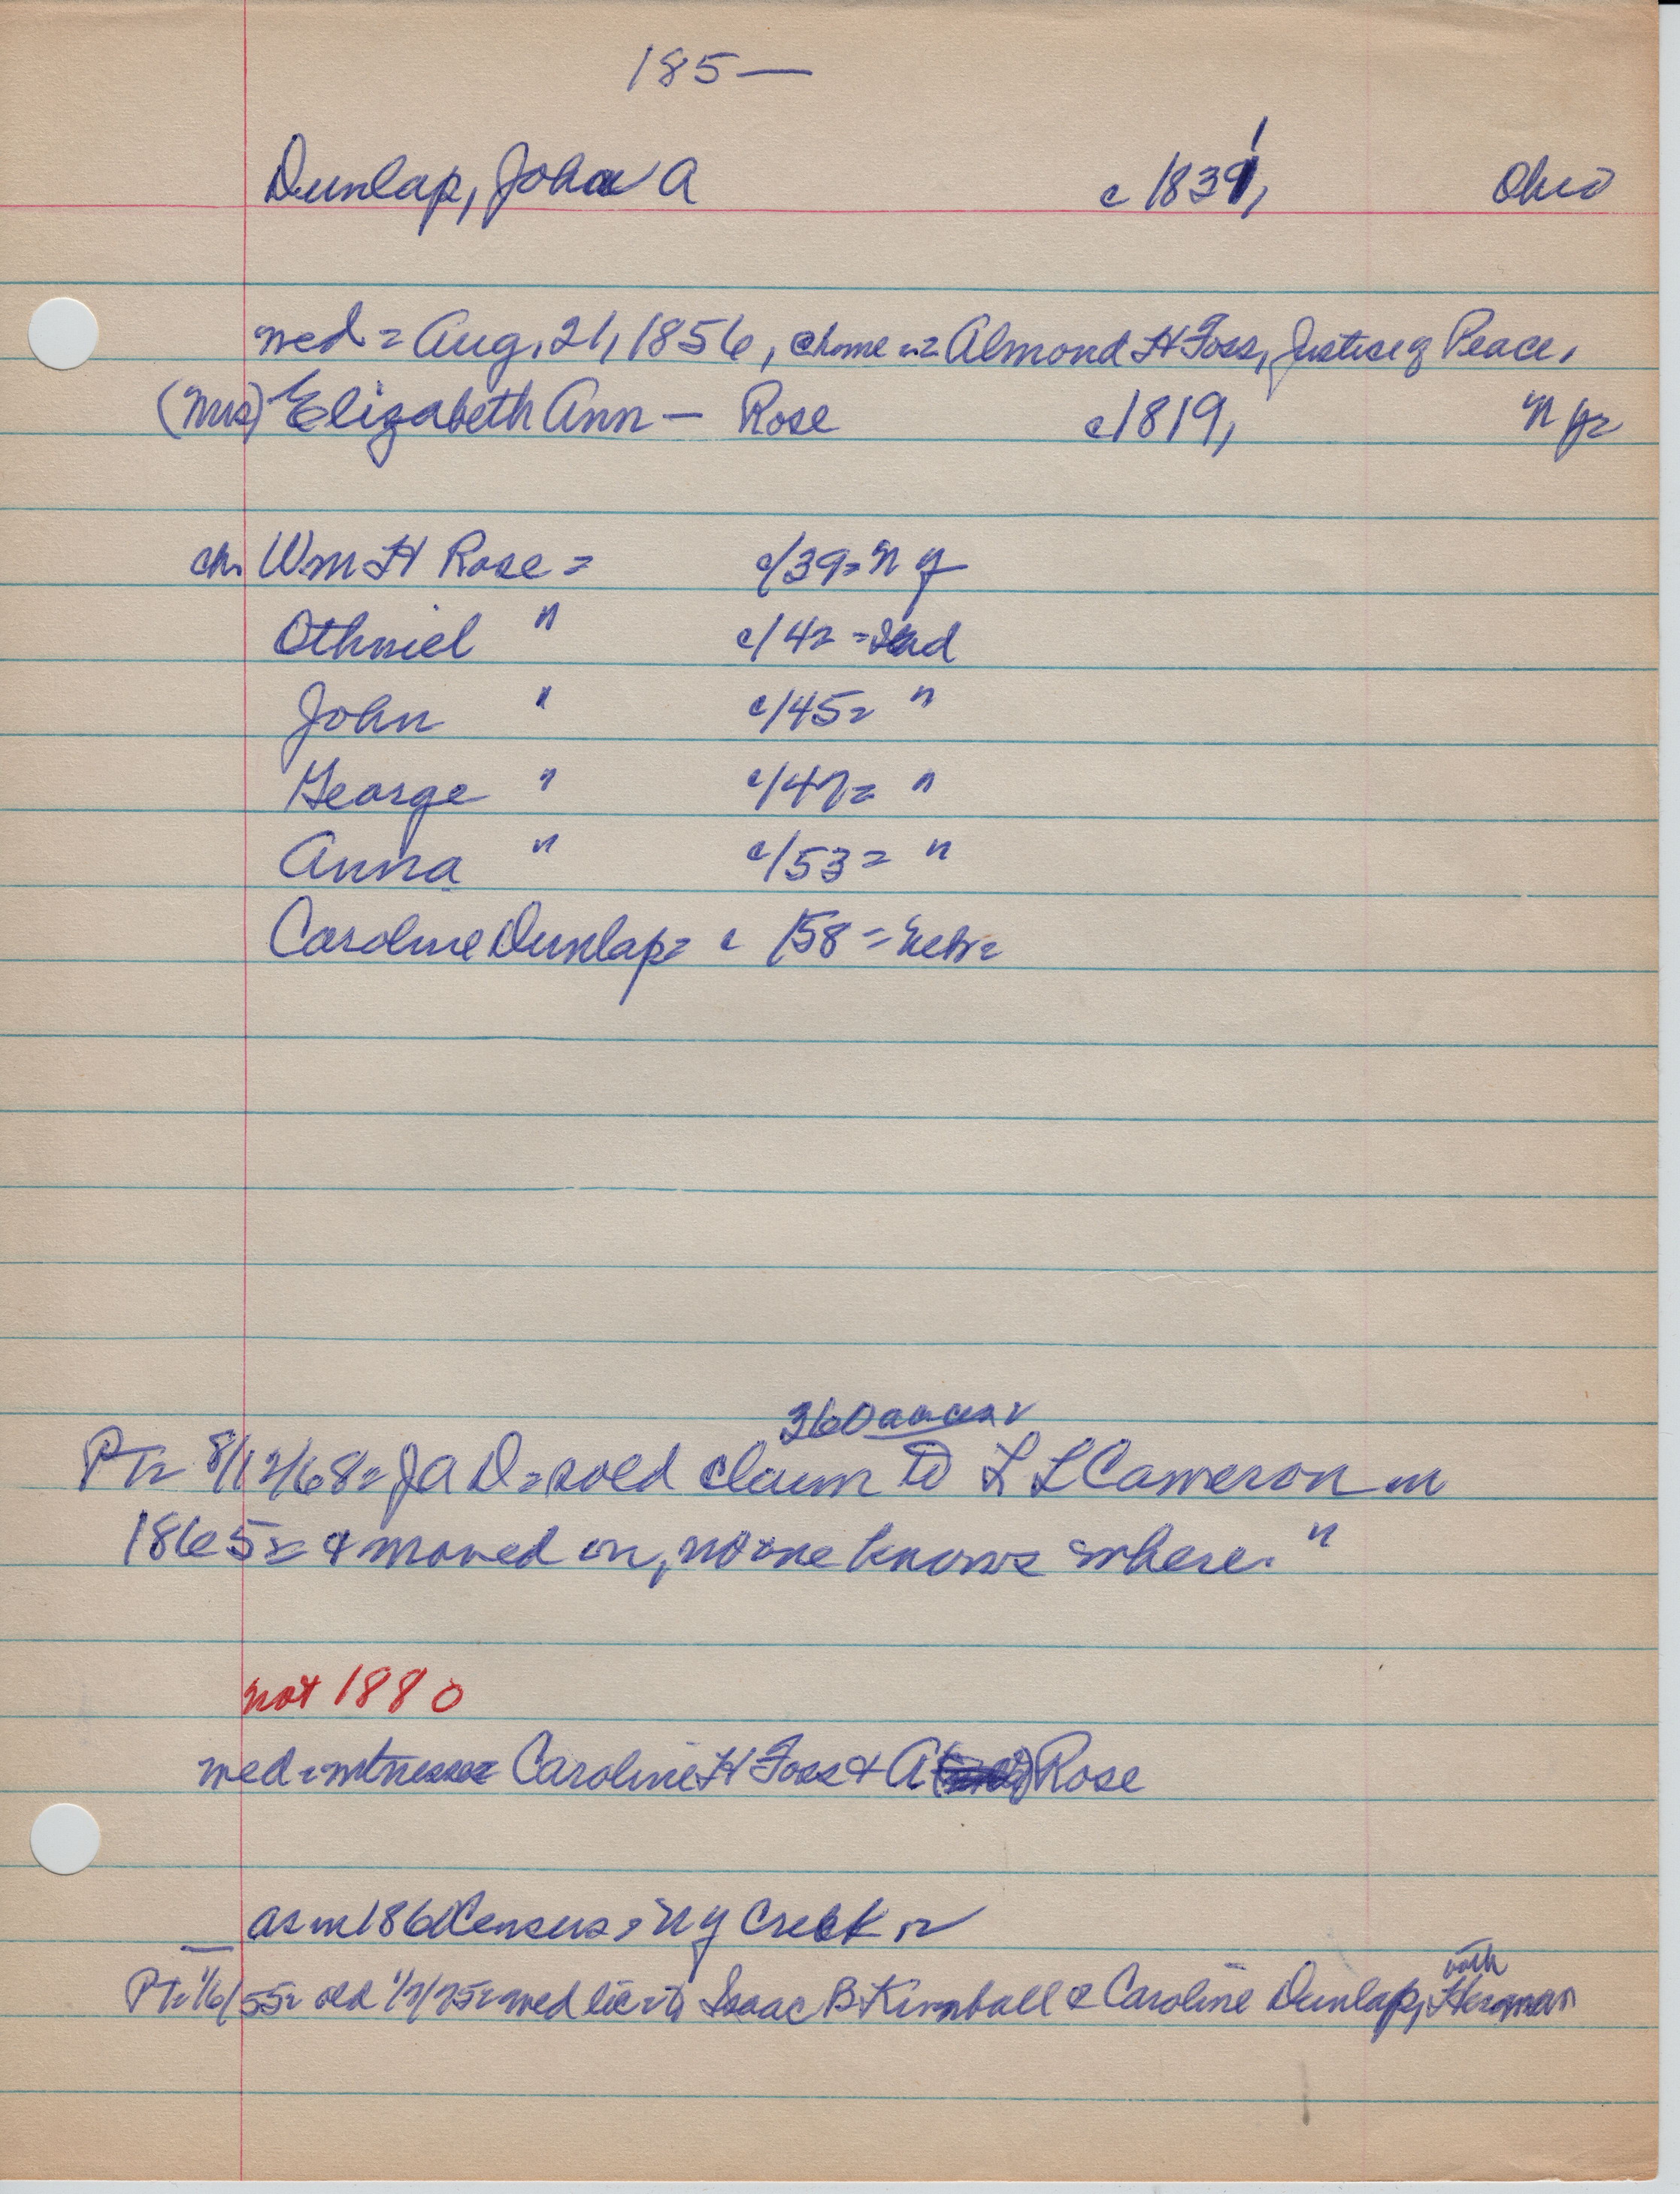 185—
Dunlap, John A c 1831, Ohio
wed = Aug. 21, 1856, @ home = Almond H Foss, Justice of Peace.
(Mrs) Elizabeth Ann — Rose c 1819, N Y =
ch. Wm H Rose = c/39 = N Y
Othniel " c/42 = Ind
John " c/45 = "
George " c/47 = "
Anna " c/53 = "
Caroline Dunlap = c /58 = Nebr =
360 acres
PT = 8/12/68 = J A D = sold claim to L L Cameron in
1865 = & moved on, no one knows where. "
not 1880
wed = witnesses = Caroline H Foss & A Rose
as in 1860 Census = N Y Creek =
both
PT = 1/6/55 = old 1/7/75 = wed lic = to Isaac B Kimball & Caroline Dunlap, Herman